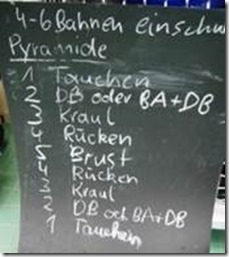 4-6 Bahnen einschw
Pyramide
1 Tauchen
2 DB oder BA+DB
3 Kraul
4 Rücken
5 Brust
4 Rücken
3 Kraul
2 DB od. BA+DB
1 Tauchen